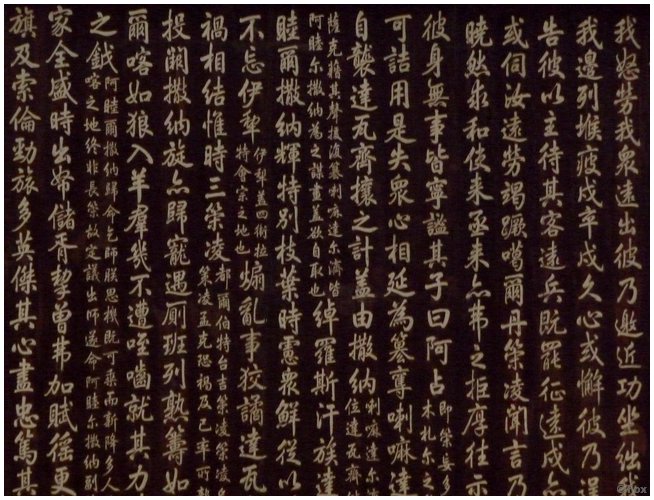 我怒勞我衆遠出彼乃邀近功坐
我邊列堠疲戍卒戍久心或懈彼乃
告彼以主待其客遠兵既罷征遠戍
或伺汝遠勞竭蹶噶爾丹策凌聞言乃
曉然求和使來亟來亦弗之拒厚往示
彼身無事皆寧謐其子曰阿占
即策妄多
木札爾之
可詰用是失衆心相延為篡奪喇嘛達
自襲達瓦齊攘之計蓋由撒納
喇嘛達尔
位達瓦齊
薩克藉其聲援復篡喇嘛達尔濟皆
阿睦尔撒納為之謀畫蓋欲自取也
綽羅斯汗族達
睦爾撒納輝特別枝葉時憲衆鮮從以
不忘伊犁
伊犁蓋四衛拉
特會宗之地也
煽亂事狡譎達瓦
禍相結惟時三策凌
都爾伯特台吉策凌策凌
策凌孟克恐禍及已率所
投闕撒納旋亦歸寵遇厠班列熟籌如
爾喀如狼入羊羣幾不遭咥嚙就其力
之鉞
阿睦爾撒納歸命乞師朕思機既可乘而新降多人
喀之地終非長策故定議出師遂命阿睦尔撒納副
家全盛時出帑儲胥挈曾弗加賦徭更
旗及索倫勁旅多英傑其心盡忠篤其